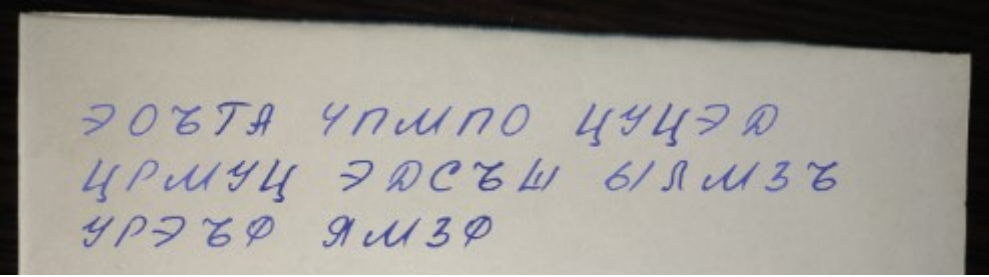 ЭОЪТА ЧПМПО ЦУЦЭД
ЦРМУЦ ЭДСЪШ ЫЛМЗЪ
УРЭЪФ ЯМЗФ